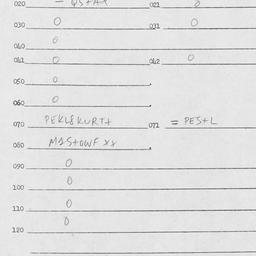 020 021 0
030 0 031 0
040 0
041 0 042 0
050 0
060 0
070 071 = PES+L
080
090 0
100 0
110 0
120 0